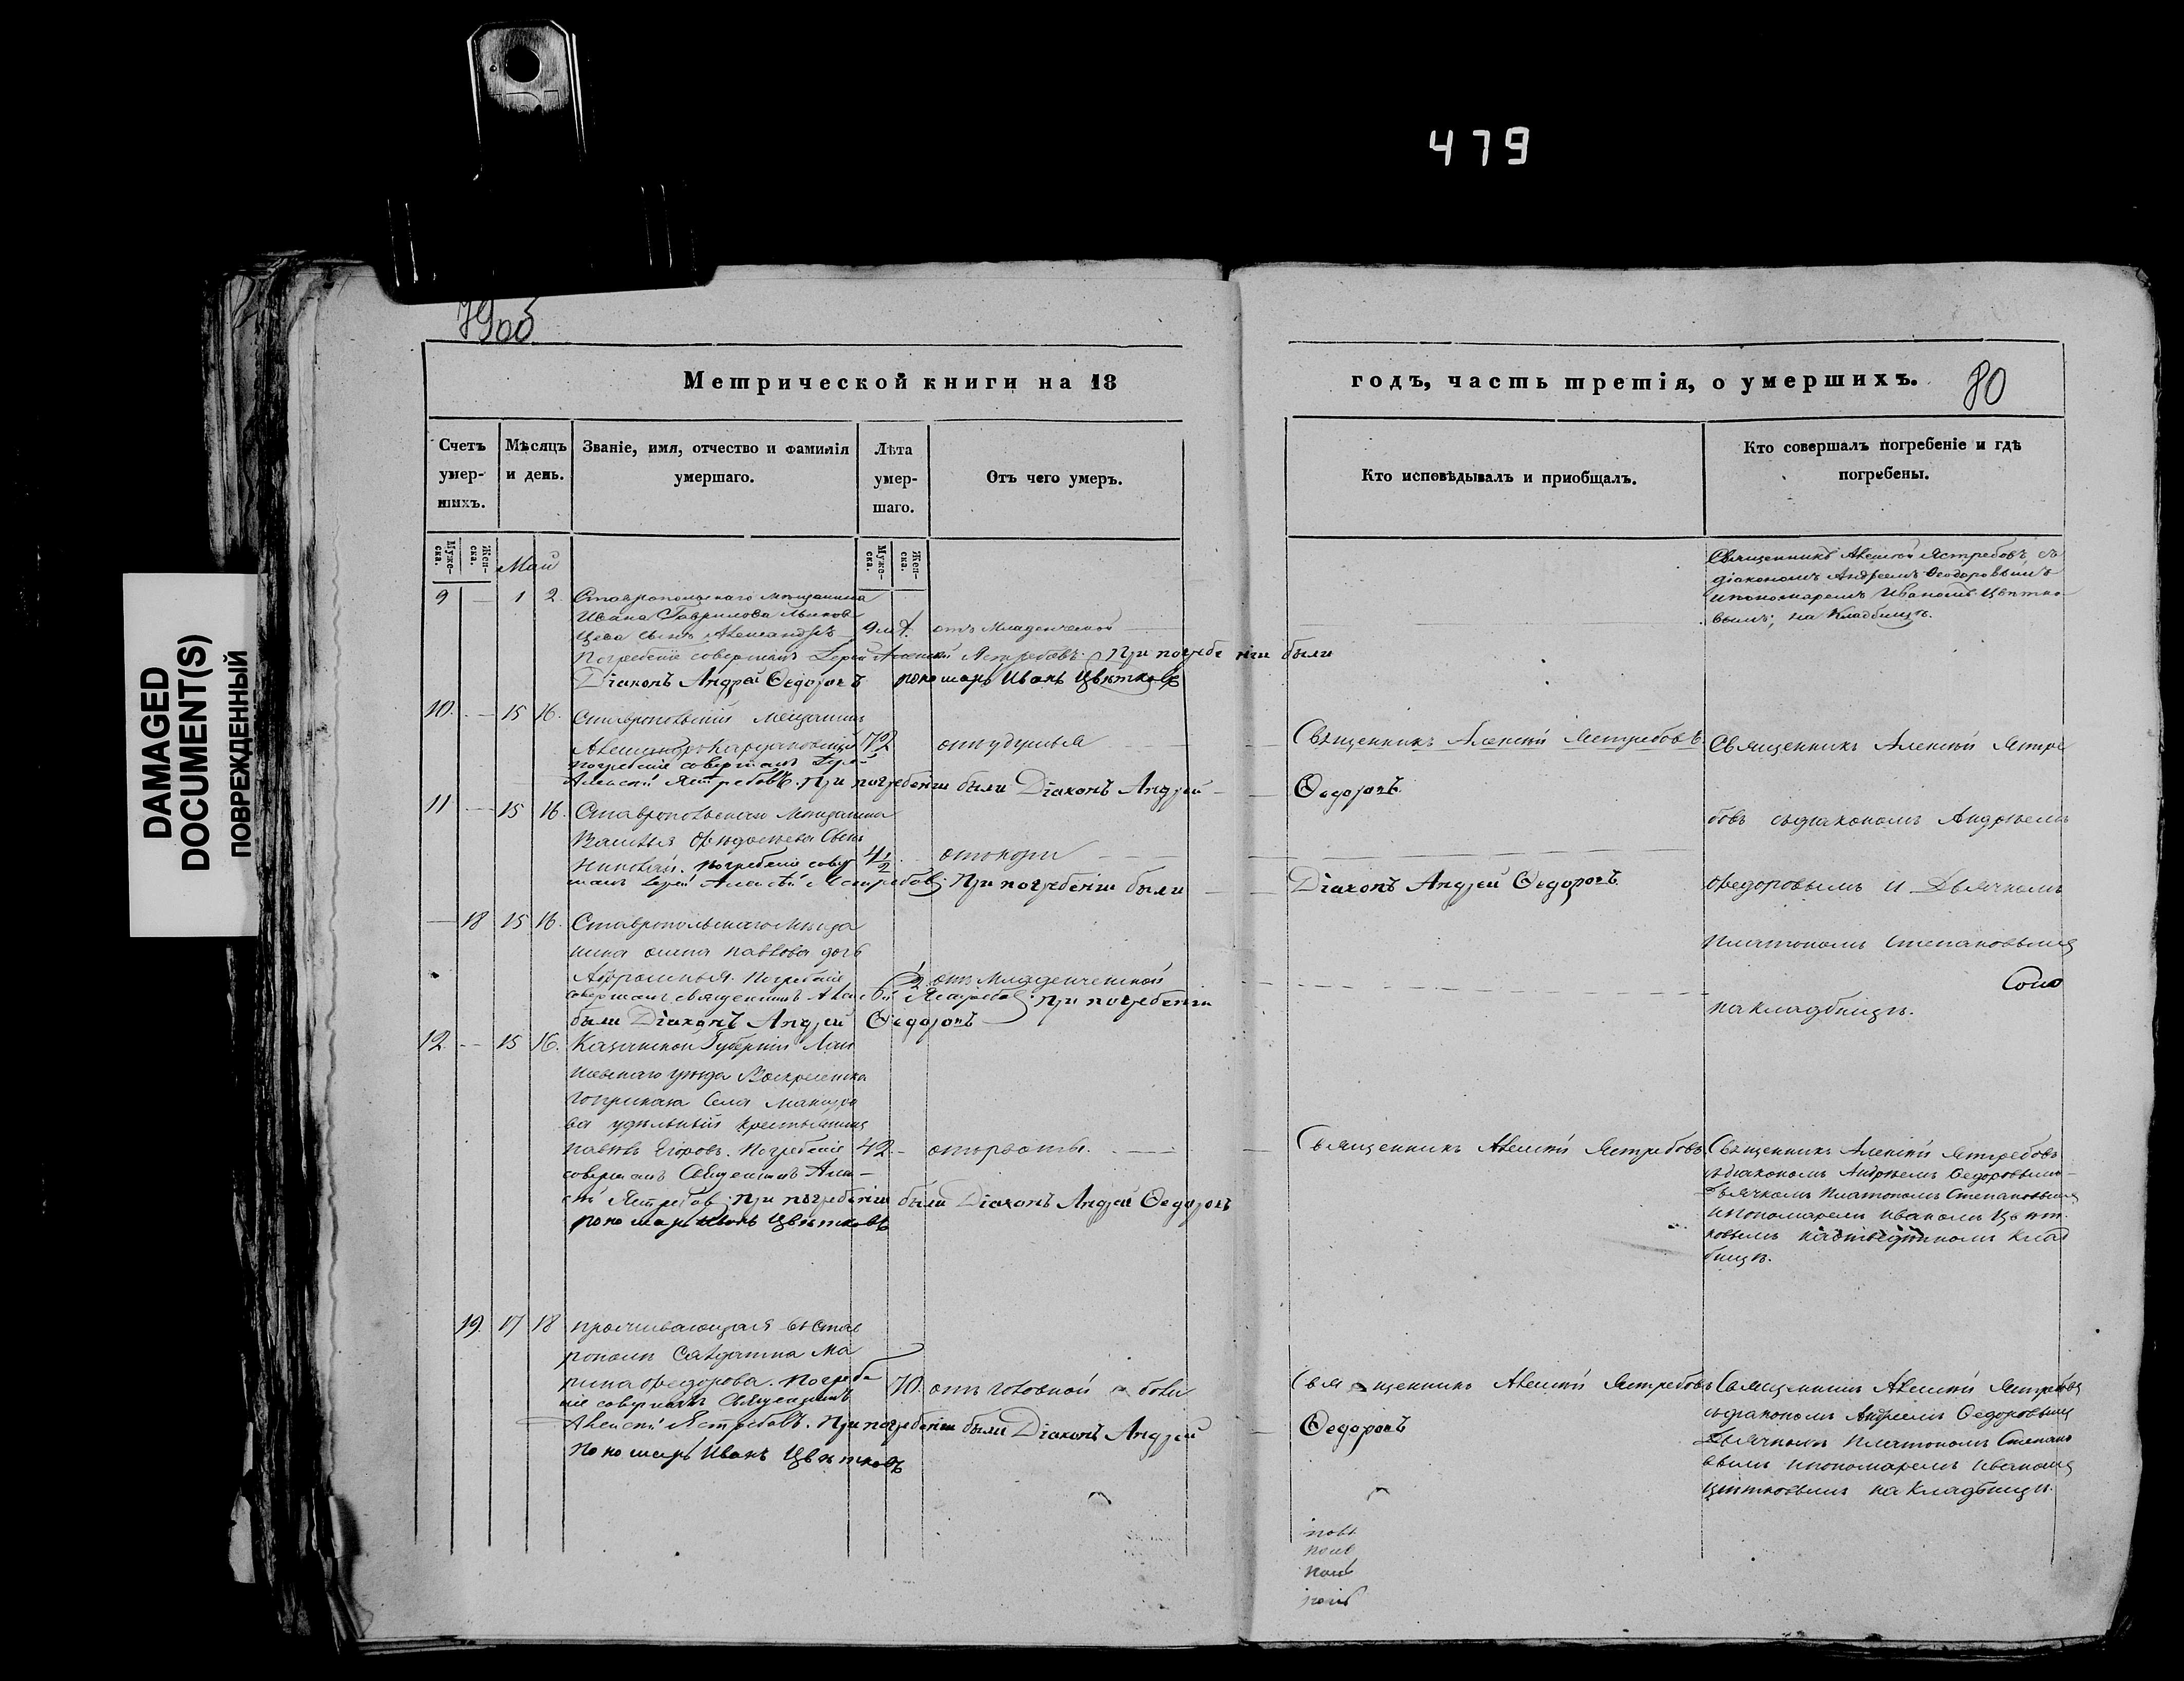 479
DAMAGED
DOCUMENT(S)
ПОВРЕЖДЕННЫЙ
79об
Метрической книги на 18
годъ, часть третія, о умершихъ.
80
Счетъ умер-шихъ.
Мѣсяцъ и день.
Званіе, имя, отчество и фамилія умершаго.
Лѣта умер-шаго.
Отъ чего умеръ.
Кто исповѣдывалъ и приобщалъ.
Кто совершалъ погребеніе и гдѣ погребены.
Муже-ска.
Жен-ска.
Муже-ска.
Жен-ска.
Май
9 — 1 2
Ивана Гаврилова
сынъ Александръ 9 отъ младенческой
Погребеніе совершалъ Іерей Алексій Ястребовъ. При погребеніи были
Діаконъ Андрей Ѳедоровъ пономарь Иванъ Цвѣтковъ
Священникъ Алексій Ястребовъ съ
діакономъ Андреемъ Ѳеодоровымъ
и пономаремъ Иваномъ Цвѣтко
вымъ, на кладбищѣ.
10. — 15 16. Ставропольскій мещанинъ
72 отъ удушья
погребеніе совершалъ Іерей
Алексій Ястребовъ. При погребеніи были Діаконъ Андрей
Ѳедоровъ
Священникъ Алексій Ястребовъ
Священникъ Алексій Ястре
бовъ съ діакономъ Андреемъ
Федоровымъ и Дьячкомъ
Платономъ Степановымъ
на кладбищѣ.
11 — 15 16. Ставропольскаго мещанина
погребеніе совер 4 1/2
шалъ Іерей Алексѣй Ястребовъ. При погребеніи были
Діаконъ Андрей Ѳедоровъ
— 18 15 16. Ставропольскаго меща
нина Павлова дочь
Погребеніе 1/2 отъ младенческой
совершалъ священникъ Алексій Ястребовъ. При погребеніи
были Діаконъ Андрей Ѳедоровъ
12. — 15 16. Казанской Губерніи Лаи
шевскаго уѣзда Воскресенска
го приказа Села
ва удѣльный крестьянинъ
Павелъ Егоровъ. Погребеніе 42 — отъ рвоты.
совершалъ Священникъ Алек
сій Ястребовъ. При погребеніи были Діаконъ Андрей Ѳедоровъ
пономарь Иванъ Цвѣтковъ
Священникъ Алексій Ястребовъ
Священникъ Алексій Ястребовъ
съ діакономъ Андреемъ Ѳедоровымъ
Дьячкомъ Платономъ Степановымъ
и пономаремъ Иваномъ Цвѣт
ковымъ клад
бищѣ.
19. 17 18 проживающая въ Став
рополѣ Солдатка Ма
рина Федорова. Погребе 70. отъ головной боли
ніе совершалъ Священникъ
Алексій Ястребовъ. При погребеніи были Діаконъ Андрей
Ѳедоровъ
пономарь Иванъ Цвѣтковъ
Священникъ Алексій Ястребовъ
Священникъ Алексій Ястребовъ
съ діакономъ Андреемъ Ѳедоровымъ
Дьячкомъ Платономъ Степано
вымъ и пономаремъ Иваномъ
Цвѣтковымъ на кладбищѣ.